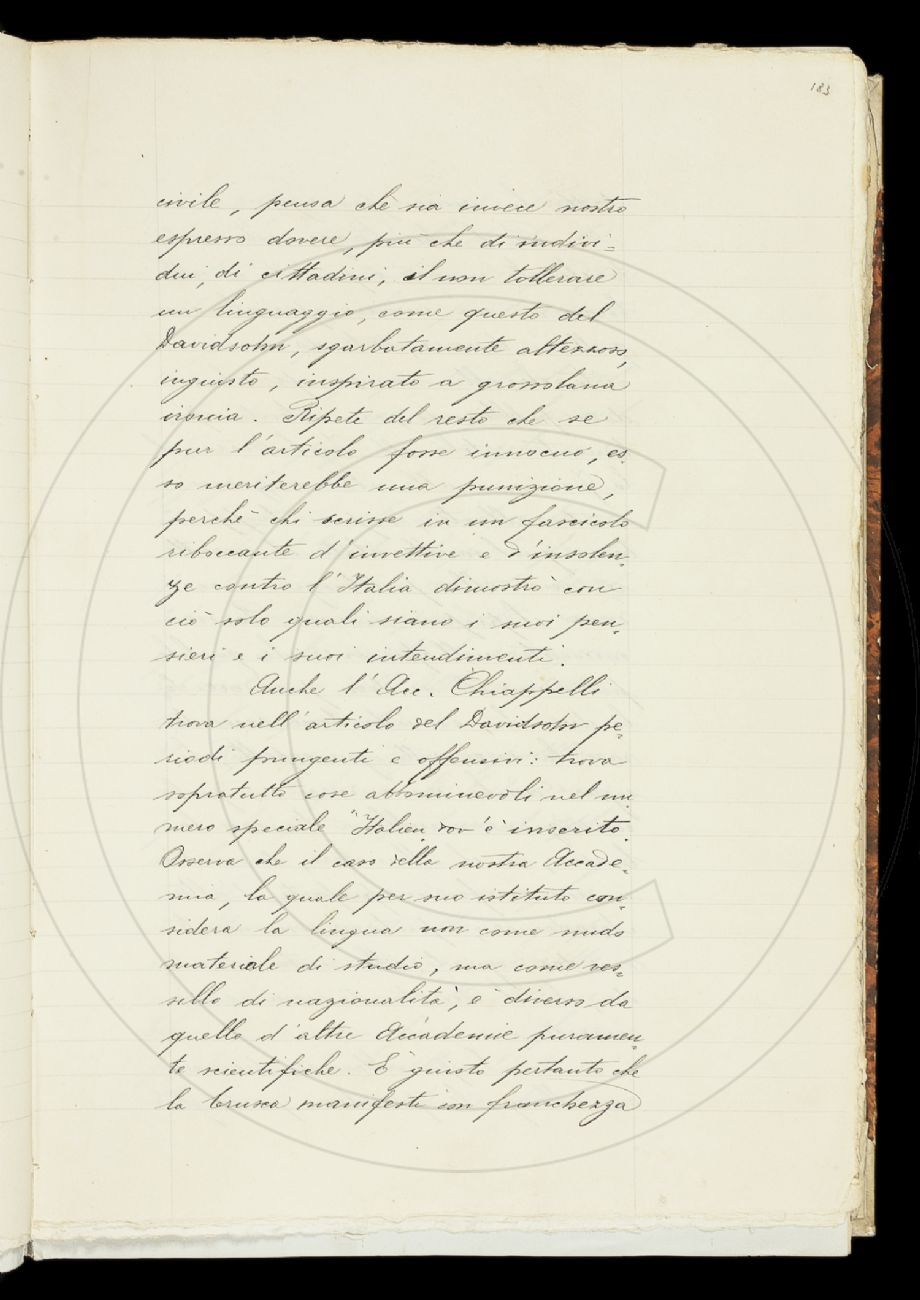 183
civile, pensa che sia invece nostro
espresso dovere, più che di indivi=
dui, di cittadini, il non tollerare
un linguaggio, come questo del
Davidsohn, sgarbatamente altezzoso,
ingiusto, inspirato a grossolana
ironia. Ripete del resto che se
pur l'articolo fosse innocuo, es-
so meriterebbe una punizione,
perchè chi scrisse in un fascicolo
riboccante d'invettive e d'insolen-
ze contro l'Italia dimostrò con
ciò solo quali siano i suoi pen-
sieri e i suoi intendimenti.
Anche l'Acc. Chiappelli
trova nell'articolo del Davidsohn pe-
riodi pungenti e offensivi: trova
sopratutto cose abominevoli nel nu-
mero speciale "Italien" dov'è inserito.
Osserva che il caso della nostra Accade-
mia, la quale per suo istituto con-
sidera la lingua non come nudo
materiale di studio, ma come ves-
sillo di nazionalità, è diverso da
quello d'altre Accademie puramen-
te scientifiche. È giusto pertanto che
la Crusca manifesti con franchezza